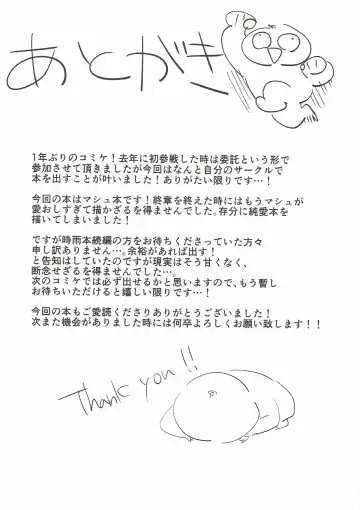 あとがき
1年ぶりのコミケ！去年に初参戦した時は委託という形で
参加させて頂きましたが今回はなんと自分のサークルで
本を出すことが叶いました！ありがたい限りです…！
今回の本はマシュ本！終章を終えた時にはもうマシュが
愛おしすぎて描かざるを得ませんでした。存分に純愛本を
描いてしまいました！
ですが時雨本続編の方をお待ちくださっていた方々
申し訳ありません…。余裕があれば出す！
と告知はしていたのですが現実はそう甘くなく、
断念せざるを得ませんでした…。
次のコミケでは必ず出せるかと思いますので、もう暫し
お待ちいただけると嬉しい限りです！
今回の本もご愛読くださりありがとうございました！
次また機会がありました時には何卒よろしくお願い致します！！
Thank you!!